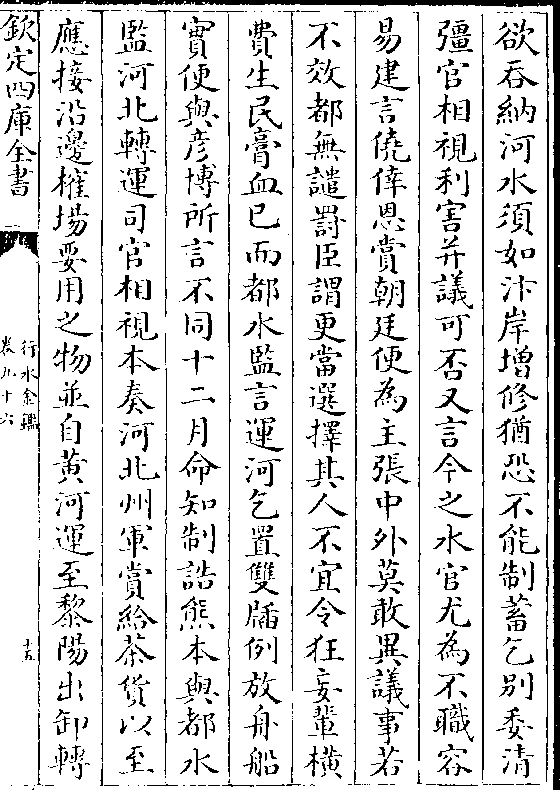 欲吞納河水須如汴岸增修猶恐不能制蓄乞别委清
彊官相視利害并議可否又言今之水官尤為不職容
易建言僥倖恩賞朝廷便為主張中外莫敢異議事若
不效都無譴罰臣謂更當選擇其人不宜令狂妄輩横
費生民膏血已而都水監言運河乞置雙牐例放舟船
實便與彦博所言不同十二月命知制誥熊本與都水
監河北轉運司官相視本奏河北州軍賞給茶貨以至
應接沿邊榷場要用之物並自黄河運至黎陽出卸轉
欽定四庫全書
行水金鑑
卷九十六
十五